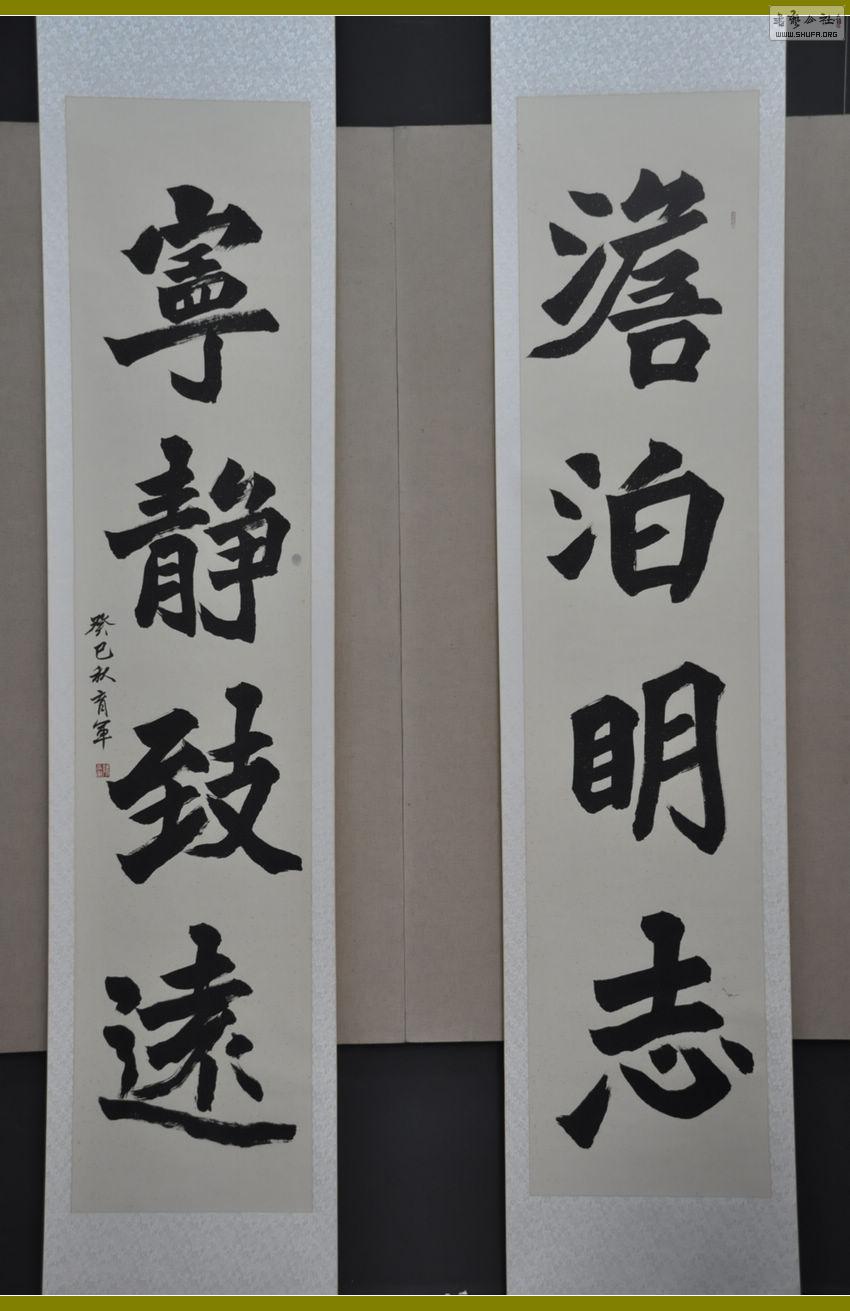 澹泊明志
寧靜致遠
癸巳秋育軍
書法公社
WWW.SHUFA.ORG